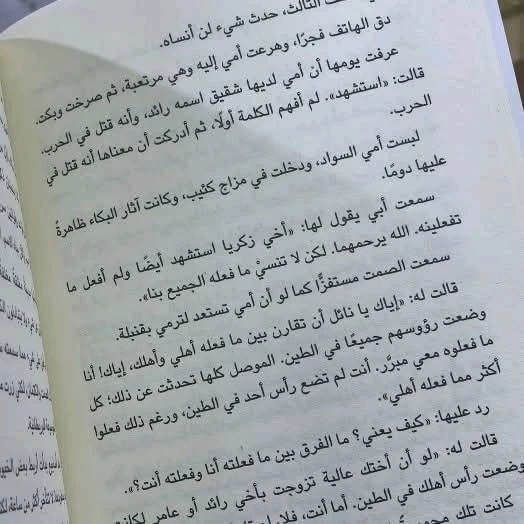 الثالث، حدث شيء لن أنساه.
دق الهاتف فجرًا، وهرعت أمي إليه وهي مرتعبة، ثم صرخت وبكت.
عرفت يومها أن أمي لديها شقيق اسمه رائد، وأنه قتل في الحرب.
قالت: «استشهد». لم أفهم الكلمة أولًا، ثم أدركت أن معناها أنه قتل في
الحرب.
لبست أمي السواد، ودخلت في مزاج كئيب، وكانت آثار البكاء ظاهرةً
عليها دومًا.
سمعت أبي يقول لها: «أخي زكريا استشهد أيضًا ولم أفعل ما
تفعلينه. الله يرحمهما. لكن لا تنسيْ ما فعله الجميع بنا».
سمعت الصمت مستفزًّا كما لو أن أمي تستعد لترمي بقنبلة.
قالت له: «إياك يا نائل أن تقارن بين ما فعله أهلي وأهلك، إياك! أنا
وضعت رؤوسهم جميعًا في الطين. الموصل كلها تحدثت عن ذلك؛ كل
ما فعلوه معي مبرَّر. أنت لم تضع رأس أحد في الطين، ورغم ذلك فعلوا
أكثر مما فعله أهلي».
رد عليها: «كيف يعني؟ ما الفرق بين ما فعلته أنا وفعلته أنت؟».
قالت له: «لو أن أختك عالية تزوجت بأخي رائد أو عامر لكانت
وضعت رأس أهلك في الطين. أما أنت، فلا
كانت تلك